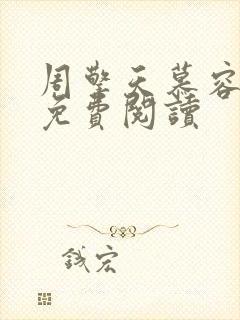 周擎天慕容
免費閱讀
鐵宏